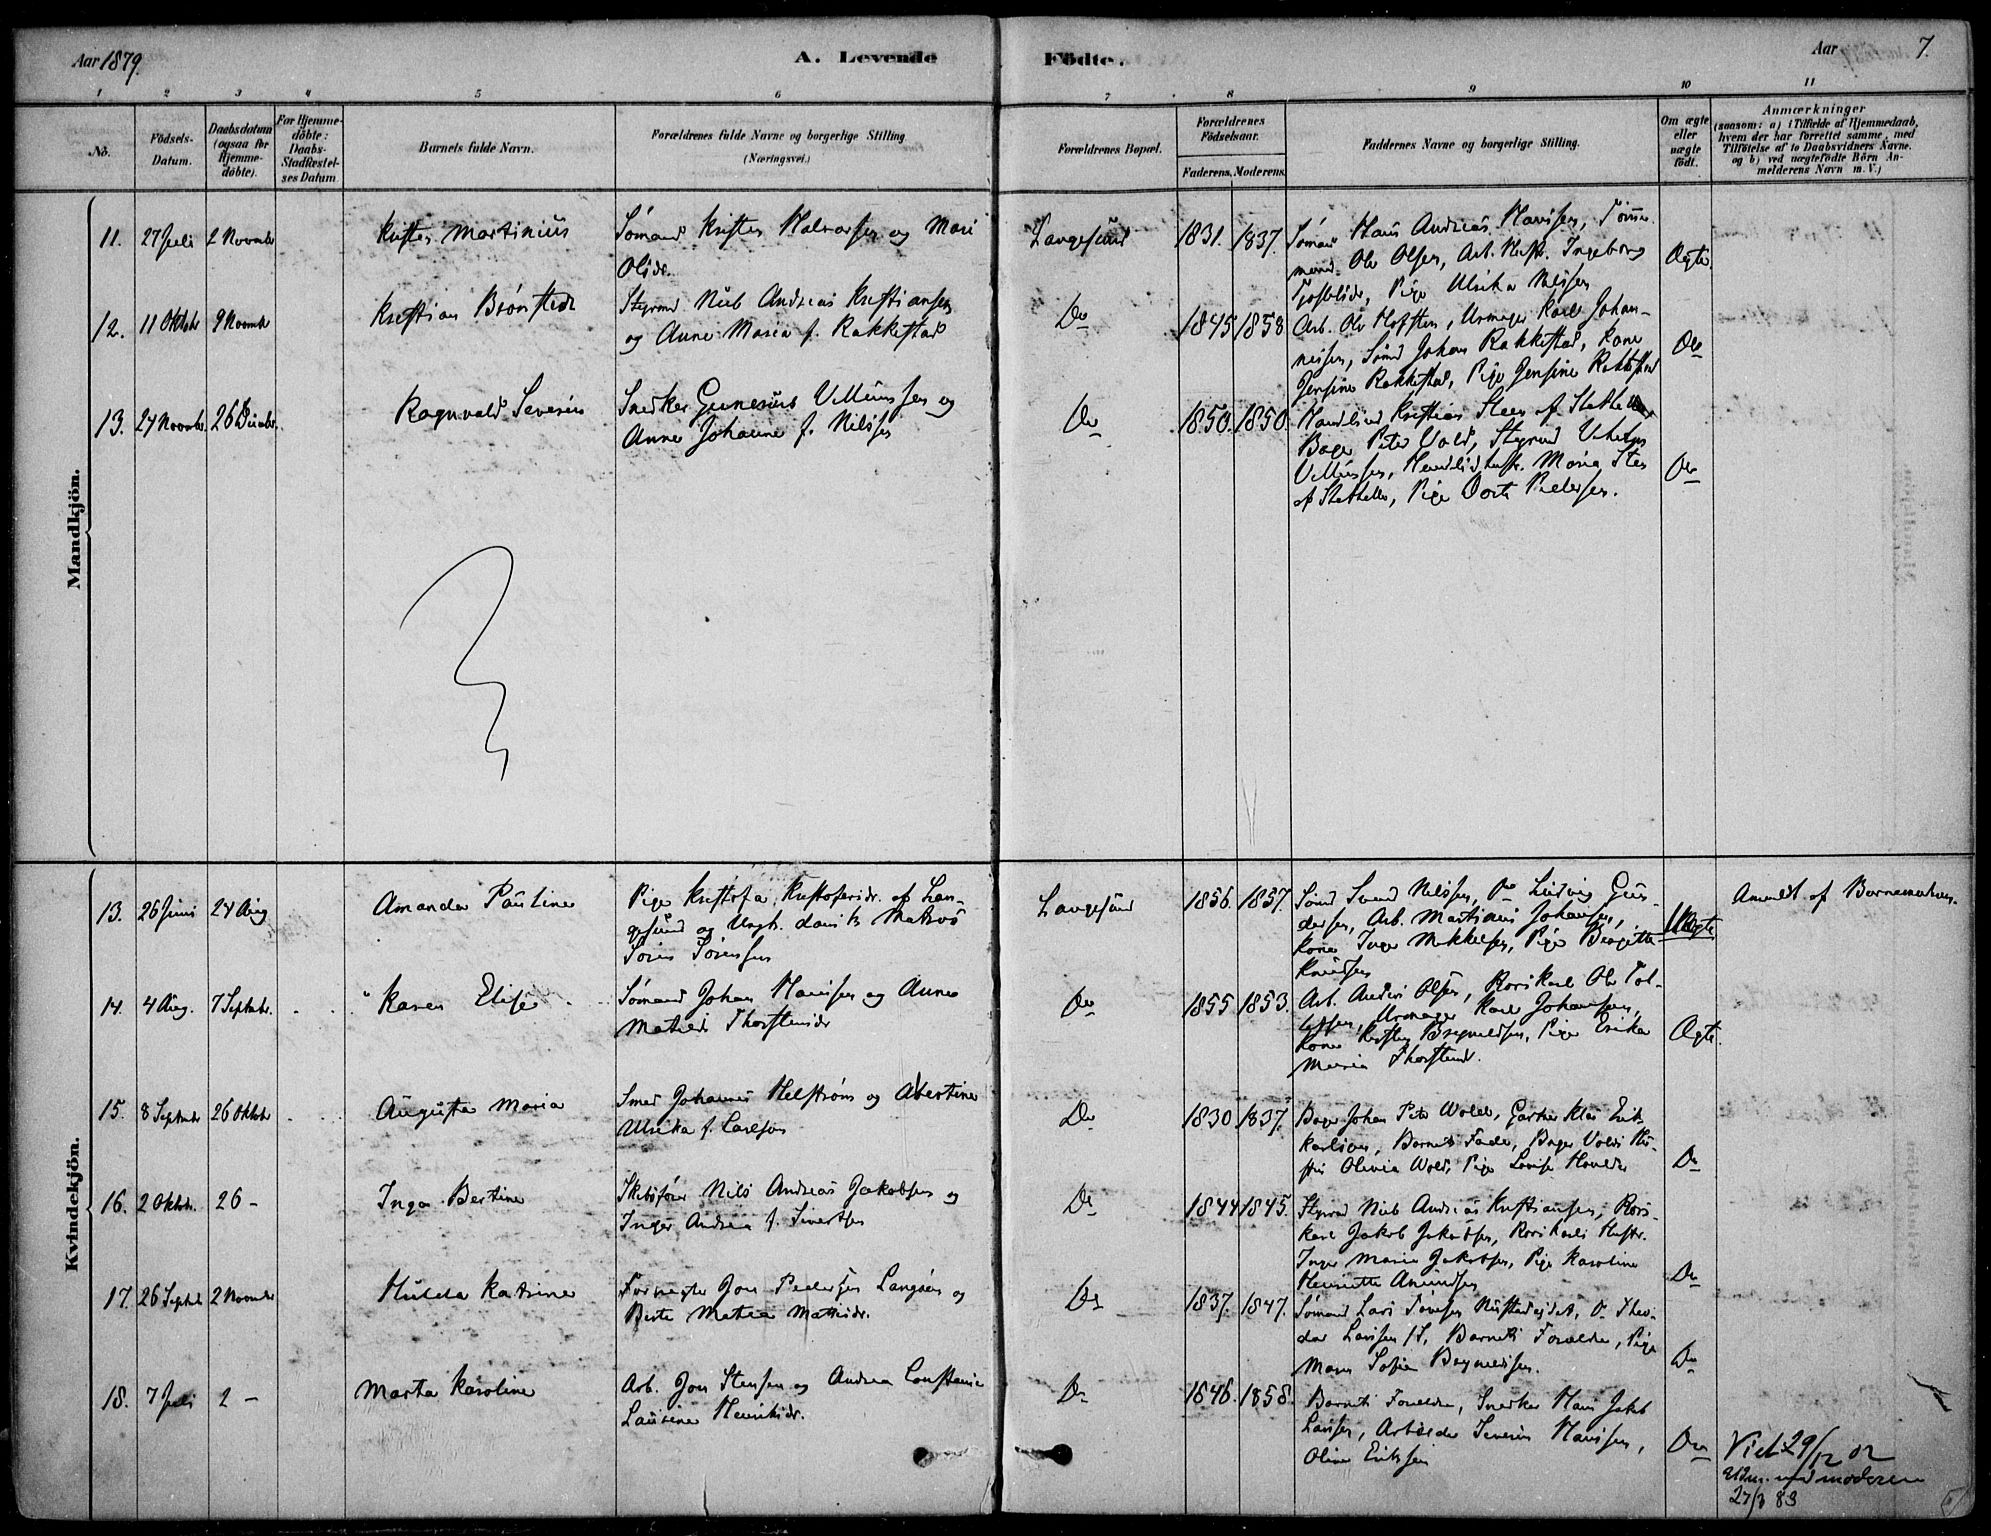 Aar 1879.
A. Levende
Födte.
Aar
7.
1 2 3 4 5 6 7 8 9 10 11
No.
Födsels-Datum.
Daabsdatum (ogsaa for Hjemme-döbte).
For Hjemme-döbte: Daabs-Stadfæstel-ses Datum
Barnets fulde Navn.
Forældrenes fulde Navne og borgerlige Stilling (Næringsvei.)
Forældrenes Bopæl.
Forældrenes Födselsaar.
Faderens. Moderens.
Faddernes Navne og borgerlige Stilling.
Om ægte eller uægte födt.
Anmærkninger
(saasom: a) i Tilfælde af Hjemmedaab, hvem der har forrettet samme, med Tilföielse af to Daabsvidners Navne. og b) ved uægtefödte Börn An-melderens Navn m. V.)
Mandkjön.
11. 27 Juli 2 Novmbr Martinius
Sømand Halvorsen og Mari
Olsdr.
Langesund 1831. 1837.
Sømand Hans Andreas Hansen,
Ole Olsen, Arb. Hustr. Ingeborg
Pige Ulrika Nilsen
Ægte.
12. 11 Oktobr 9 Novmbr Kristian Brønsted
Styrmd Niels Andreas Kristiansen
og Anne Maria f. Rakkestad
Do 1845 1858
Arb. Ole Hofsten, Urmager Karl Johan-
nissen, Sømd Johan Rakkestad, Kone
Jensine Rakkestad, Pige Jensine Rakkestad
Do
13. 24 Novmbr. 26 Decmbr. Ragnvald Severin
Snedker Gunerius Villumsen og
Anne Johanne f. Nilsen
Do 1850. 1850.
Handelsmd Kristian Steen af Stathelle
Bager Peter Wold, Styrmd Vilhelm
Villumsen, Maria Steen
af Stathelle, Pige Dorte Pedersen.
Do
Kvindekjön.
13. 26 Juni 24 Aug Amanda Pauline
Pige Kristofa Kristofersdr. af Lan-
gesund og Ungk. dansk Matros
Sören Sörensen
Langesund 1856. 1857.
Sømd Svend Nilsen, Do Ludvig Gun-
dersen, Arb. Martinius Johansen,
Kone Inger Mikkelsen, Pige Birgitte
Knudsen
Uægte
Anmeldt af Barnemoderen.
14. 4 Aug. 7 Septmbr. Karen Elise
Sømand Johan Hansen og Anne
Matilde Thorstensdr
Do 1855 1853.
Arb. Anders Olsen, Ole Tol-
lefsen, Urmager Karl Johansen,
Kone Bryneldsen, Pige Erika
Maria Thorstensdr.
Ægte.
15. 8 Septmbr 26 Oktobr Augusta Maria
Smed Johannes Helstrøm og Albertine
Ulrika f. Carlson
Do 1830 1837.
Bager Johan Peter Wold, Gartner Klas Erik
Karlson, Barnets Fader, Bager Wolds Hu-
stru Olivia Wold, Pige Lovise
Do
16. 2 Oktobr. 26 - Inga Bertine
Skibsfører Nils Andreas Jakobsen og
Inger Andrea f. Sivertsen
Do 1844 1845.
Styrmd Niels Andreas Kristiansen,
Jakob Jakobsen, Hustr.
Inger Maria Jakobsen, Pige Karoline
Henriette Amundsen
Do
17. 26 Septmbr 2 Novmbr Hulda Katrine
Jon Pedersen Langøen og
Berte Matea Mathisdr.
Do 1837. 1847.
Sømand Lars Do Theo-
dor Larssen Barnets Forældre, Pige
Maren Sofie Bryneldsen.
Do
18. 7 Juli 2 - Marta Karoline
Arb. Jon Stensen og Andrea Constanse
Laurine Henriksdr.
Do 1846. 1858.
Barnets Forældre, Snedker Hans Jakob
Larssen, Arbeider Severin Hanssen,
Oline Eriksen
Do
Viet 29/12 02
Udm. med moderen
27/3 83